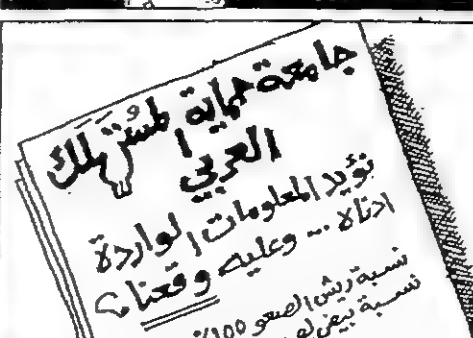 جامعة حماية المستهلك
العربي
تؤيد المعلومات الواردة
ادناه ... وعليه وقعنا
نسبة ريش الصعو 100٪
نسبة بيض